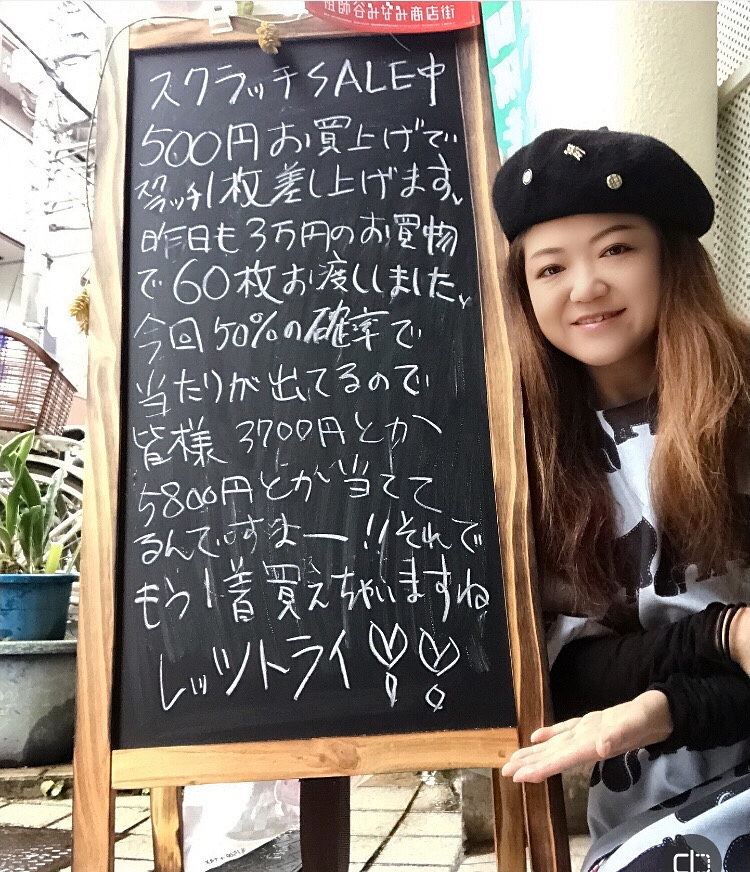 祖師谷みなみ商店街
スクラッチSALE中
500円お買上げで
スクラッチ1枚差し上げます。
昨日も3万円のお買物
で60枚お渡ししました。
今回50%の確率で
当たりが出てるので
皆様 3700円とか
5800円とか当てて
るんですよー!!それで
もう1着買えちゃいますね
レッツトライ!!